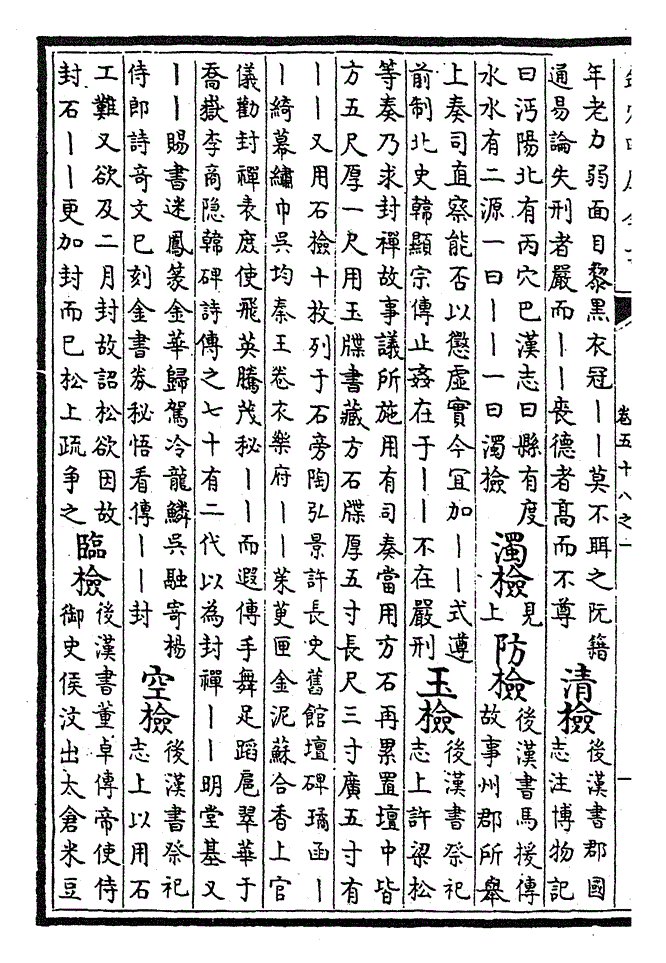 卷五十八之一
一
年老力弱面目黎黑衣冠丨丨莫不珥之阮籍
通易論失刑者嚴而丨丨喪德者髙而不尊
清檢
後漢書郡國
志注博物記
曰沔陽北有丙穴巴漢志曰縣有度
水水有二源一曰丨丨一曰濁檢
濁檢
見
上
防檢
後漢書馬援傳
故事州郡所舉
上奏司直察能否以懲虛實今冝加丨丨式遵
前制北史韓顯宗傳止姦在于丨丨不在嚴刑
玉檢
後漢書祭祀
志上許梁松
等奏乃求封禪故事議所施用有司奏當用方石再累置壇中皆
方五尺厚一尺用玉牒書藏方石牒厚五寸長尺三寸廣五寸有
丨丨又用石檢十枚列于石旁陶弘景許長史舊館壇碑璚函丨
丨綺幕繡巾吳均秦王卷衣樂府丨丨茱萸匣金泥蘇合香上官
儀勸封禪表庶使飛英騰茂秘丨丨而遐傳手舞足蹈扈翠華于
喬嶽李商隐韓碑詩傳之七十有二代以為封禪丨丨明堂基又
丨丨賜書迷鳳篆金華歸駕冷龍鱗吳融寄楊
侍郎詩奇文已刻金書券秘悟看傳丨丨封
空檢
後漢書祭祀
志上以用石
工難又欲及二月封故詔松欲因故
封石丨丨更加封而已松上疏爭之
臨檢
後漢書董卓傳帝使侍
御史侯汶出太倉米豆